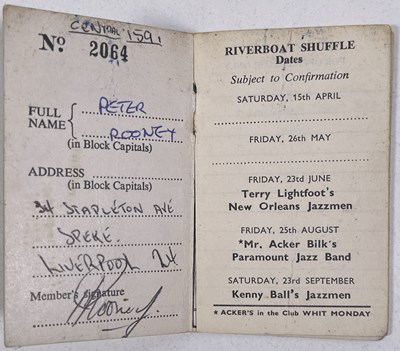 CENTRAL 1591
No. 2064
FULL NAME
PETER
ROONEY
(in Block Capitals)
ADDRESS
(in Block Capitals)
34 STAPLETON AVE
SPEKE.
LIVERPOOL 24
Member's signature
PRooney
RIVERBOAT SHUFFLE
Dates
Subject to Confirmation
SATURDAY, 15th APRIL
FRIDAY, 26th MAY
FRIDAY, 23rd JUNE
Terry Lightfoot's
New Orleans Jazzmen
FRIDAY, 25th AUGUST
*Mr. Acker Bilk's
Paramount Jazz Band
SATURDAY, 23rd SEPTEMBER
Kenny Ball's Jazzmen
*ACKER'S in the Club WHIT MONDAY